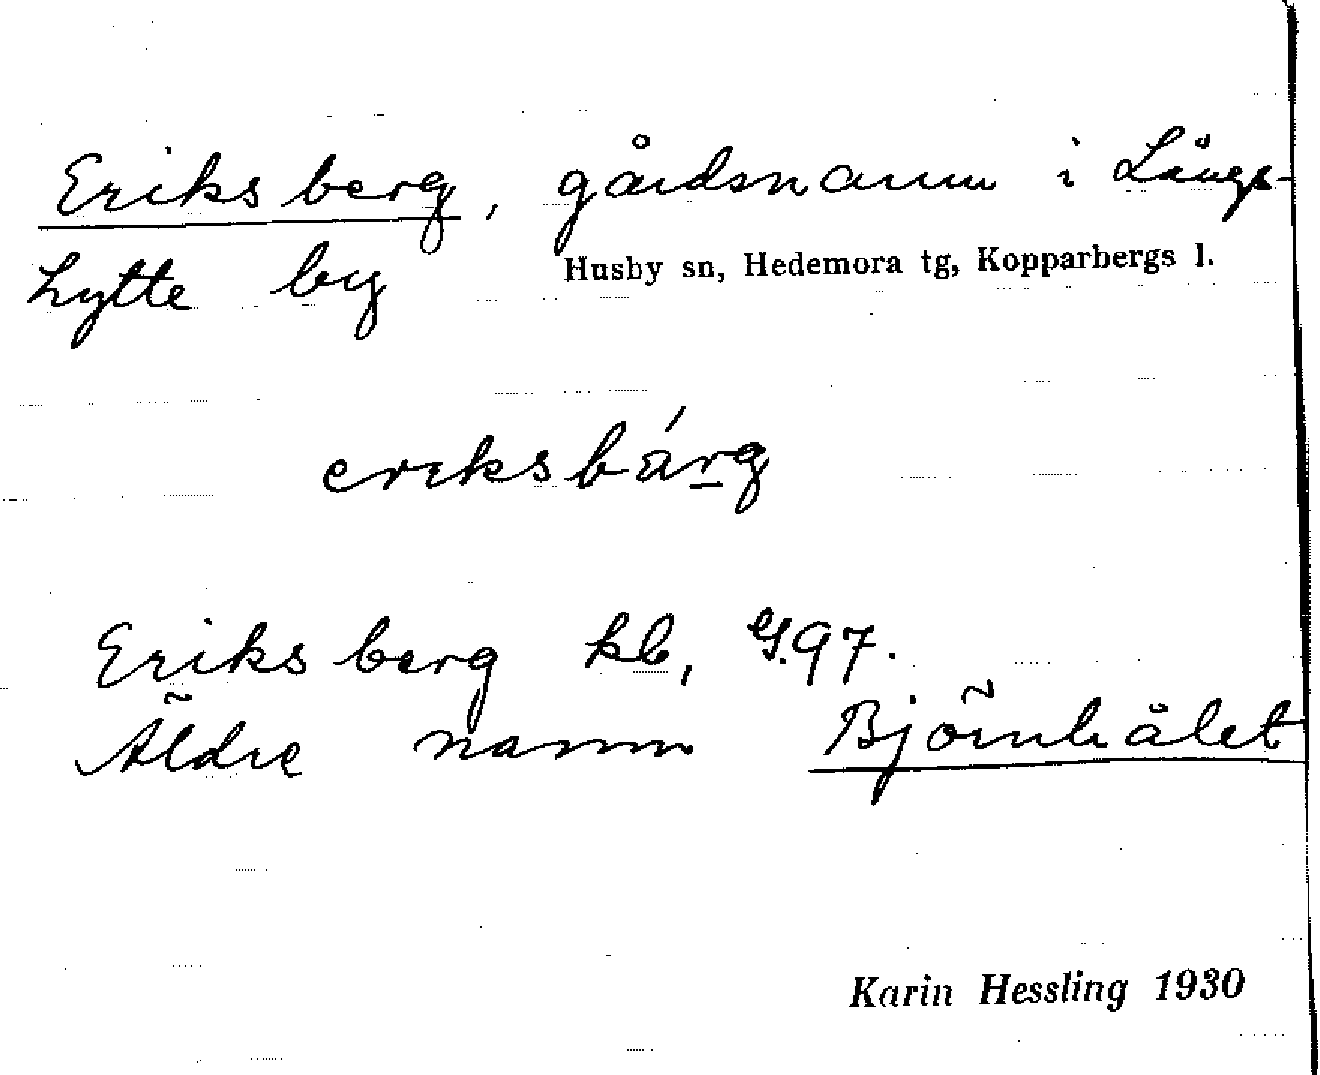 Eriksberg, gårdsnamn i Långs-
hytte by
Husby sn, Hedemora tg, Kopparbergs l.
eriksbárg
Eriksberg kb, G.97.
Äldre namn Björnhålet
Karin Hessling 1930